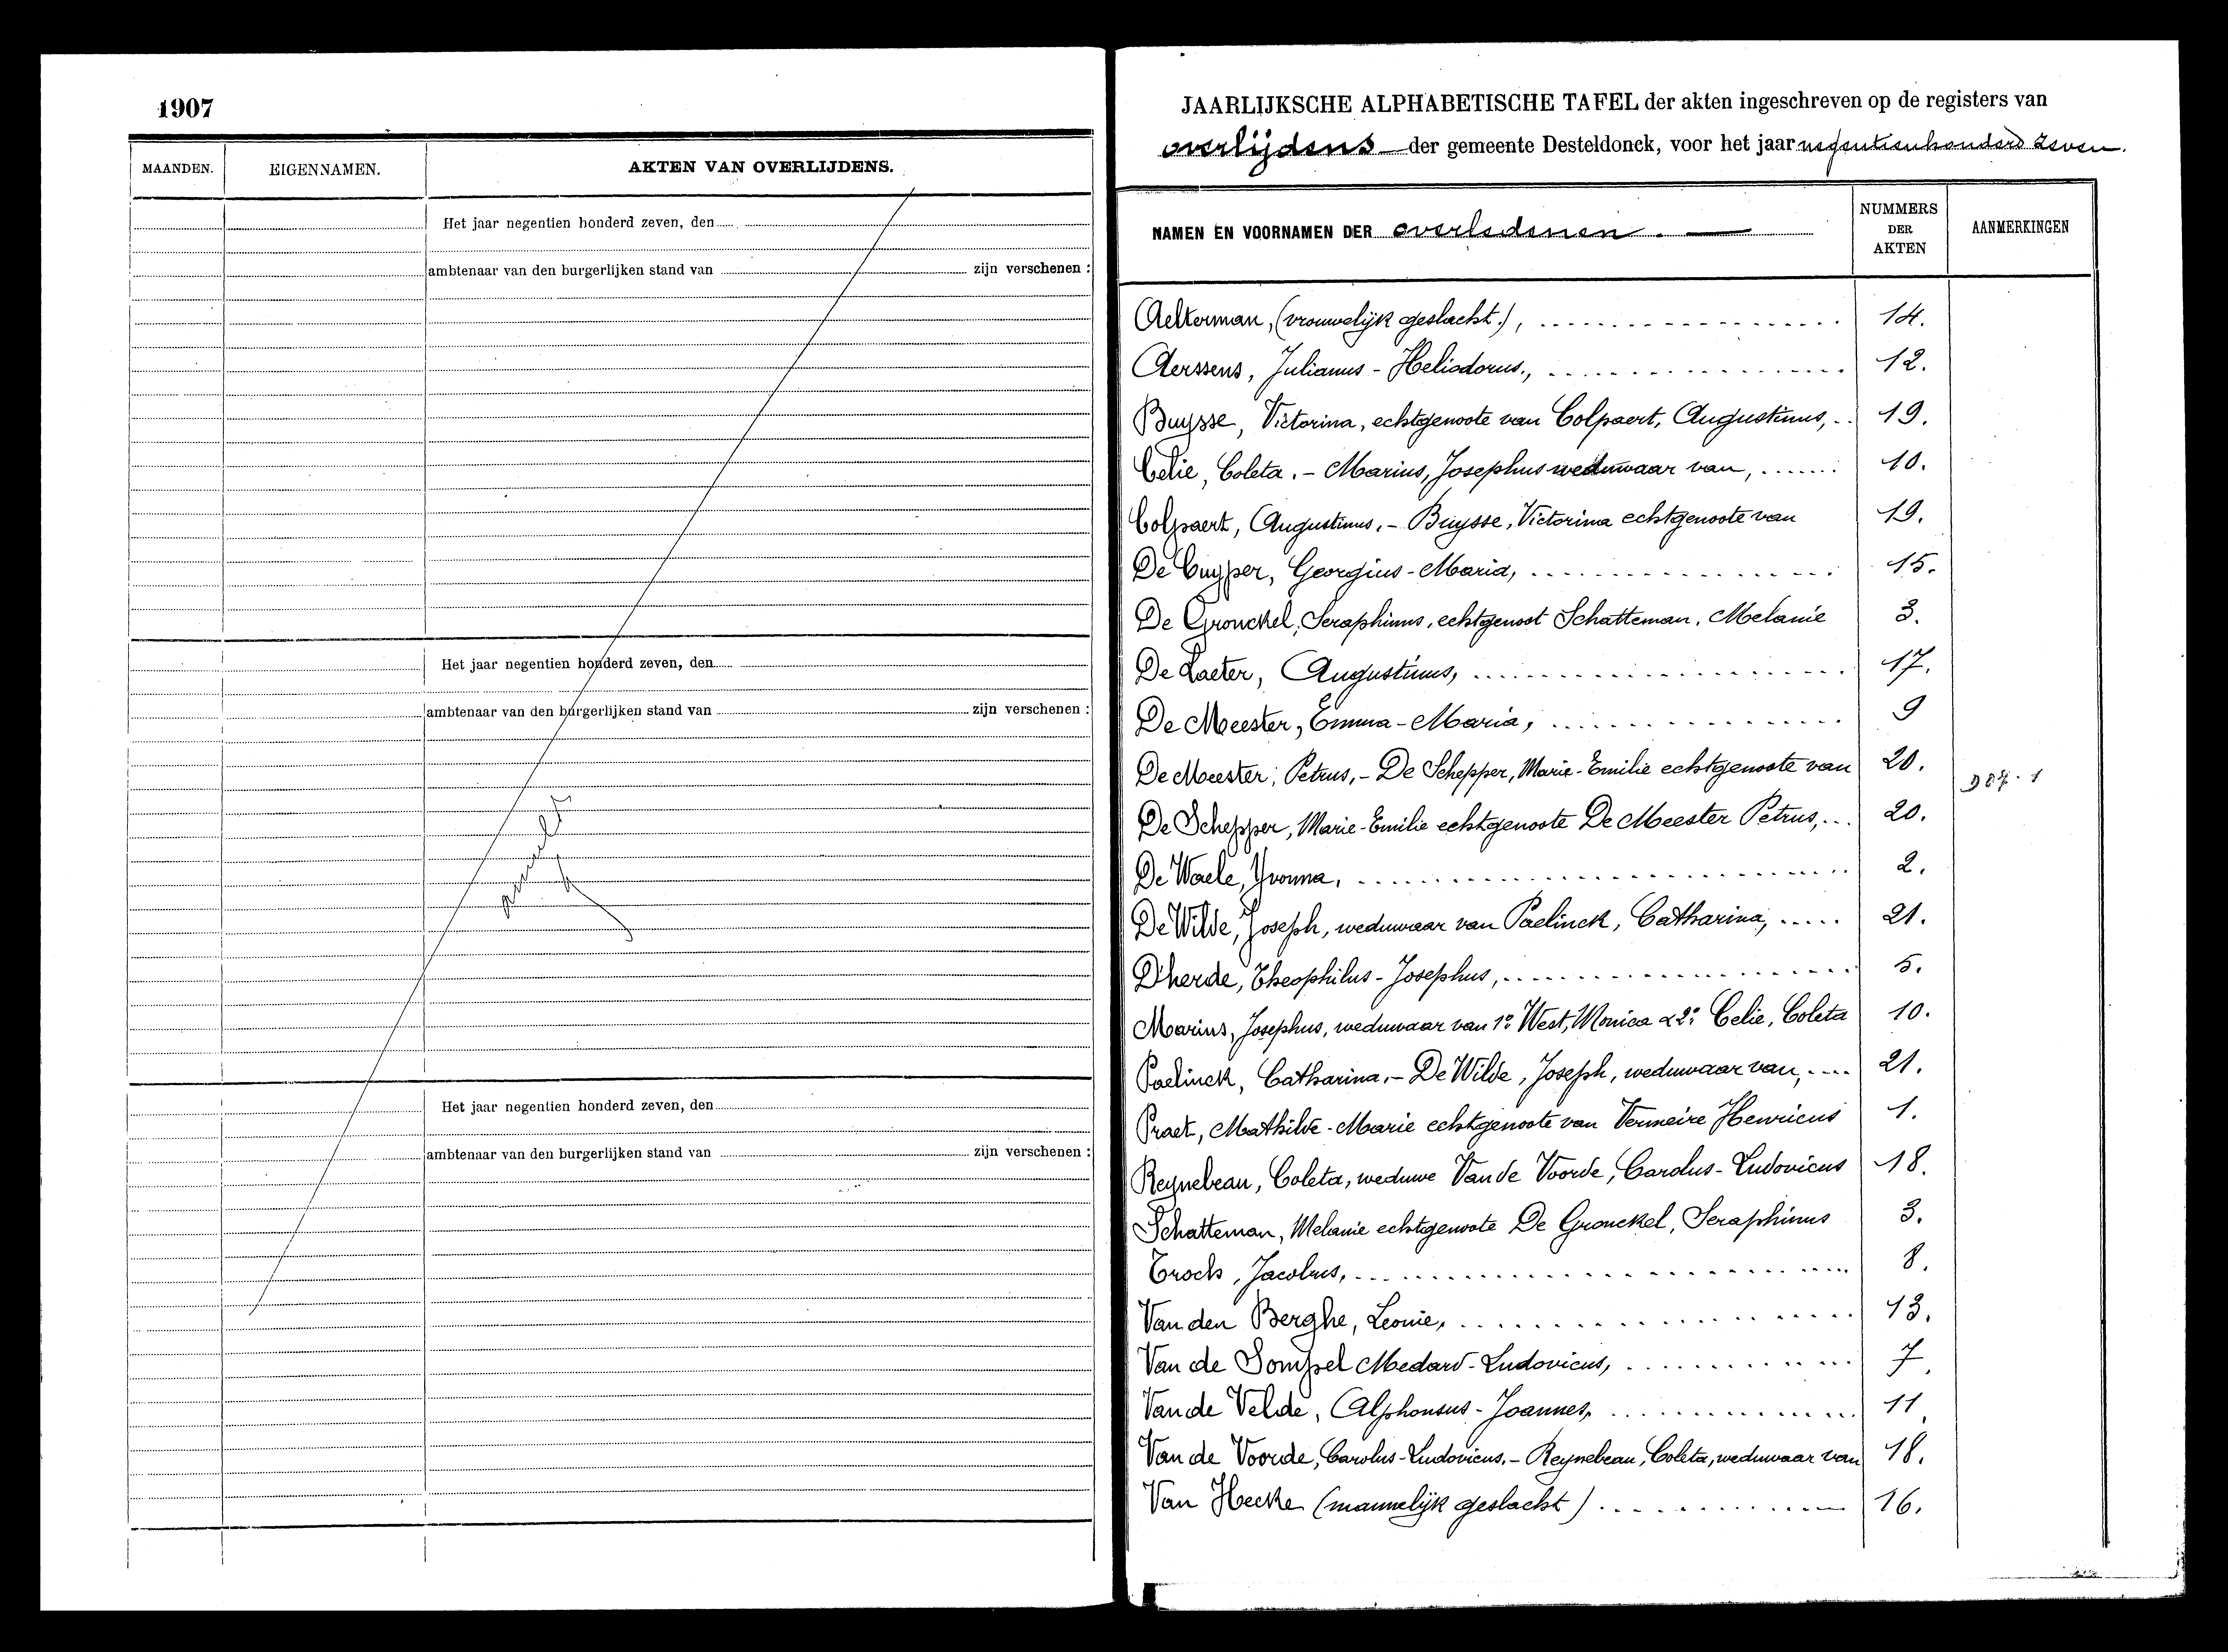 1907
MAANDEN. EIGENNAMEN. AKTEN VAN OVERLIJDENS.
Het jaar negentien honderd zeven, den
ambtenaar van den burgerlijken stand van zijn verschenen :
Het jaar negentien honderd zeven, den
ambtenaar van den burgerlijken stand van zijn verschenen :
Het jaar negentien honderd zeven, den
ambtenaar van den burgerlijken stand van zijn verschenen :
JAARLIJKSCHE ALPHABETISCHE TAFEL der akten ingeschreven op de registers van
overlijdens der gemeente Desteldonck, voor het jaar negentienhonderd zeven.
NAMEN EN VOORNAMEN DER overledenen. NUMMERS DER AKTEN AANMERKINGEN
Aelterman, (vrouwelijk geslacht.), 14.
Aerssens, Julianus - Heliodorus., 12.
Buysse, Victorina, echtgenoote van Colpaert, Augustinus, 19.
Celie, Coleta. - Marius, Josephus weduwaar van, 10.
Colpaert, Augustinus. - Buysse, Victorina echtgenoote van 19.
De Cuyper, Georgius - Maria, 15.
De Gronckel, Seraphinus, echtgenoot Schatteman, Melanie 3.
De Laeter, Augustinus, 17.
De Meester, Emma - Maria, 9
De Meester, Petrus, - De Schepper, Marie-Emilie echtgenoote van 20.
De Schepper, Marie-Emilie echtgenoote De Meester Petrus, 20.
De Waele, Yvonna, 2.
De Wilde, Joseph, weduwaar van Paelinck, Catharina, 21.
D'herde, Theophilus - Josephus, 5.
Marius, Josephus, weduwaar van 1º West, Monica & 2º Celie, Coleta 10.
Paelinck, Catharina. - De Wilde, Joseph, weduwaar van, 21.
Praet, Mathilde - Marie echtgenoote van Vermeire Henricus 1.
Reynebeau, Coleta, weduwe Van de Voorde, Carolus - Ludovicus 18.
Schatteman, Melanie echtgenoote De Gronckel, Seraphinus 3.
Trock, Jacobus, 8.
Van den Berghe, Leonie, 13.
Van de Sompel Medard - Ludovicus, 7.
Van de Velde, Alphonsus - Joannes, 11.
Van de Voorde, Carolus-Ludovicus. - Reynebeau, Coleta, weduwaar van 18.
Van Hecke (mannelijk geslacht) 16.